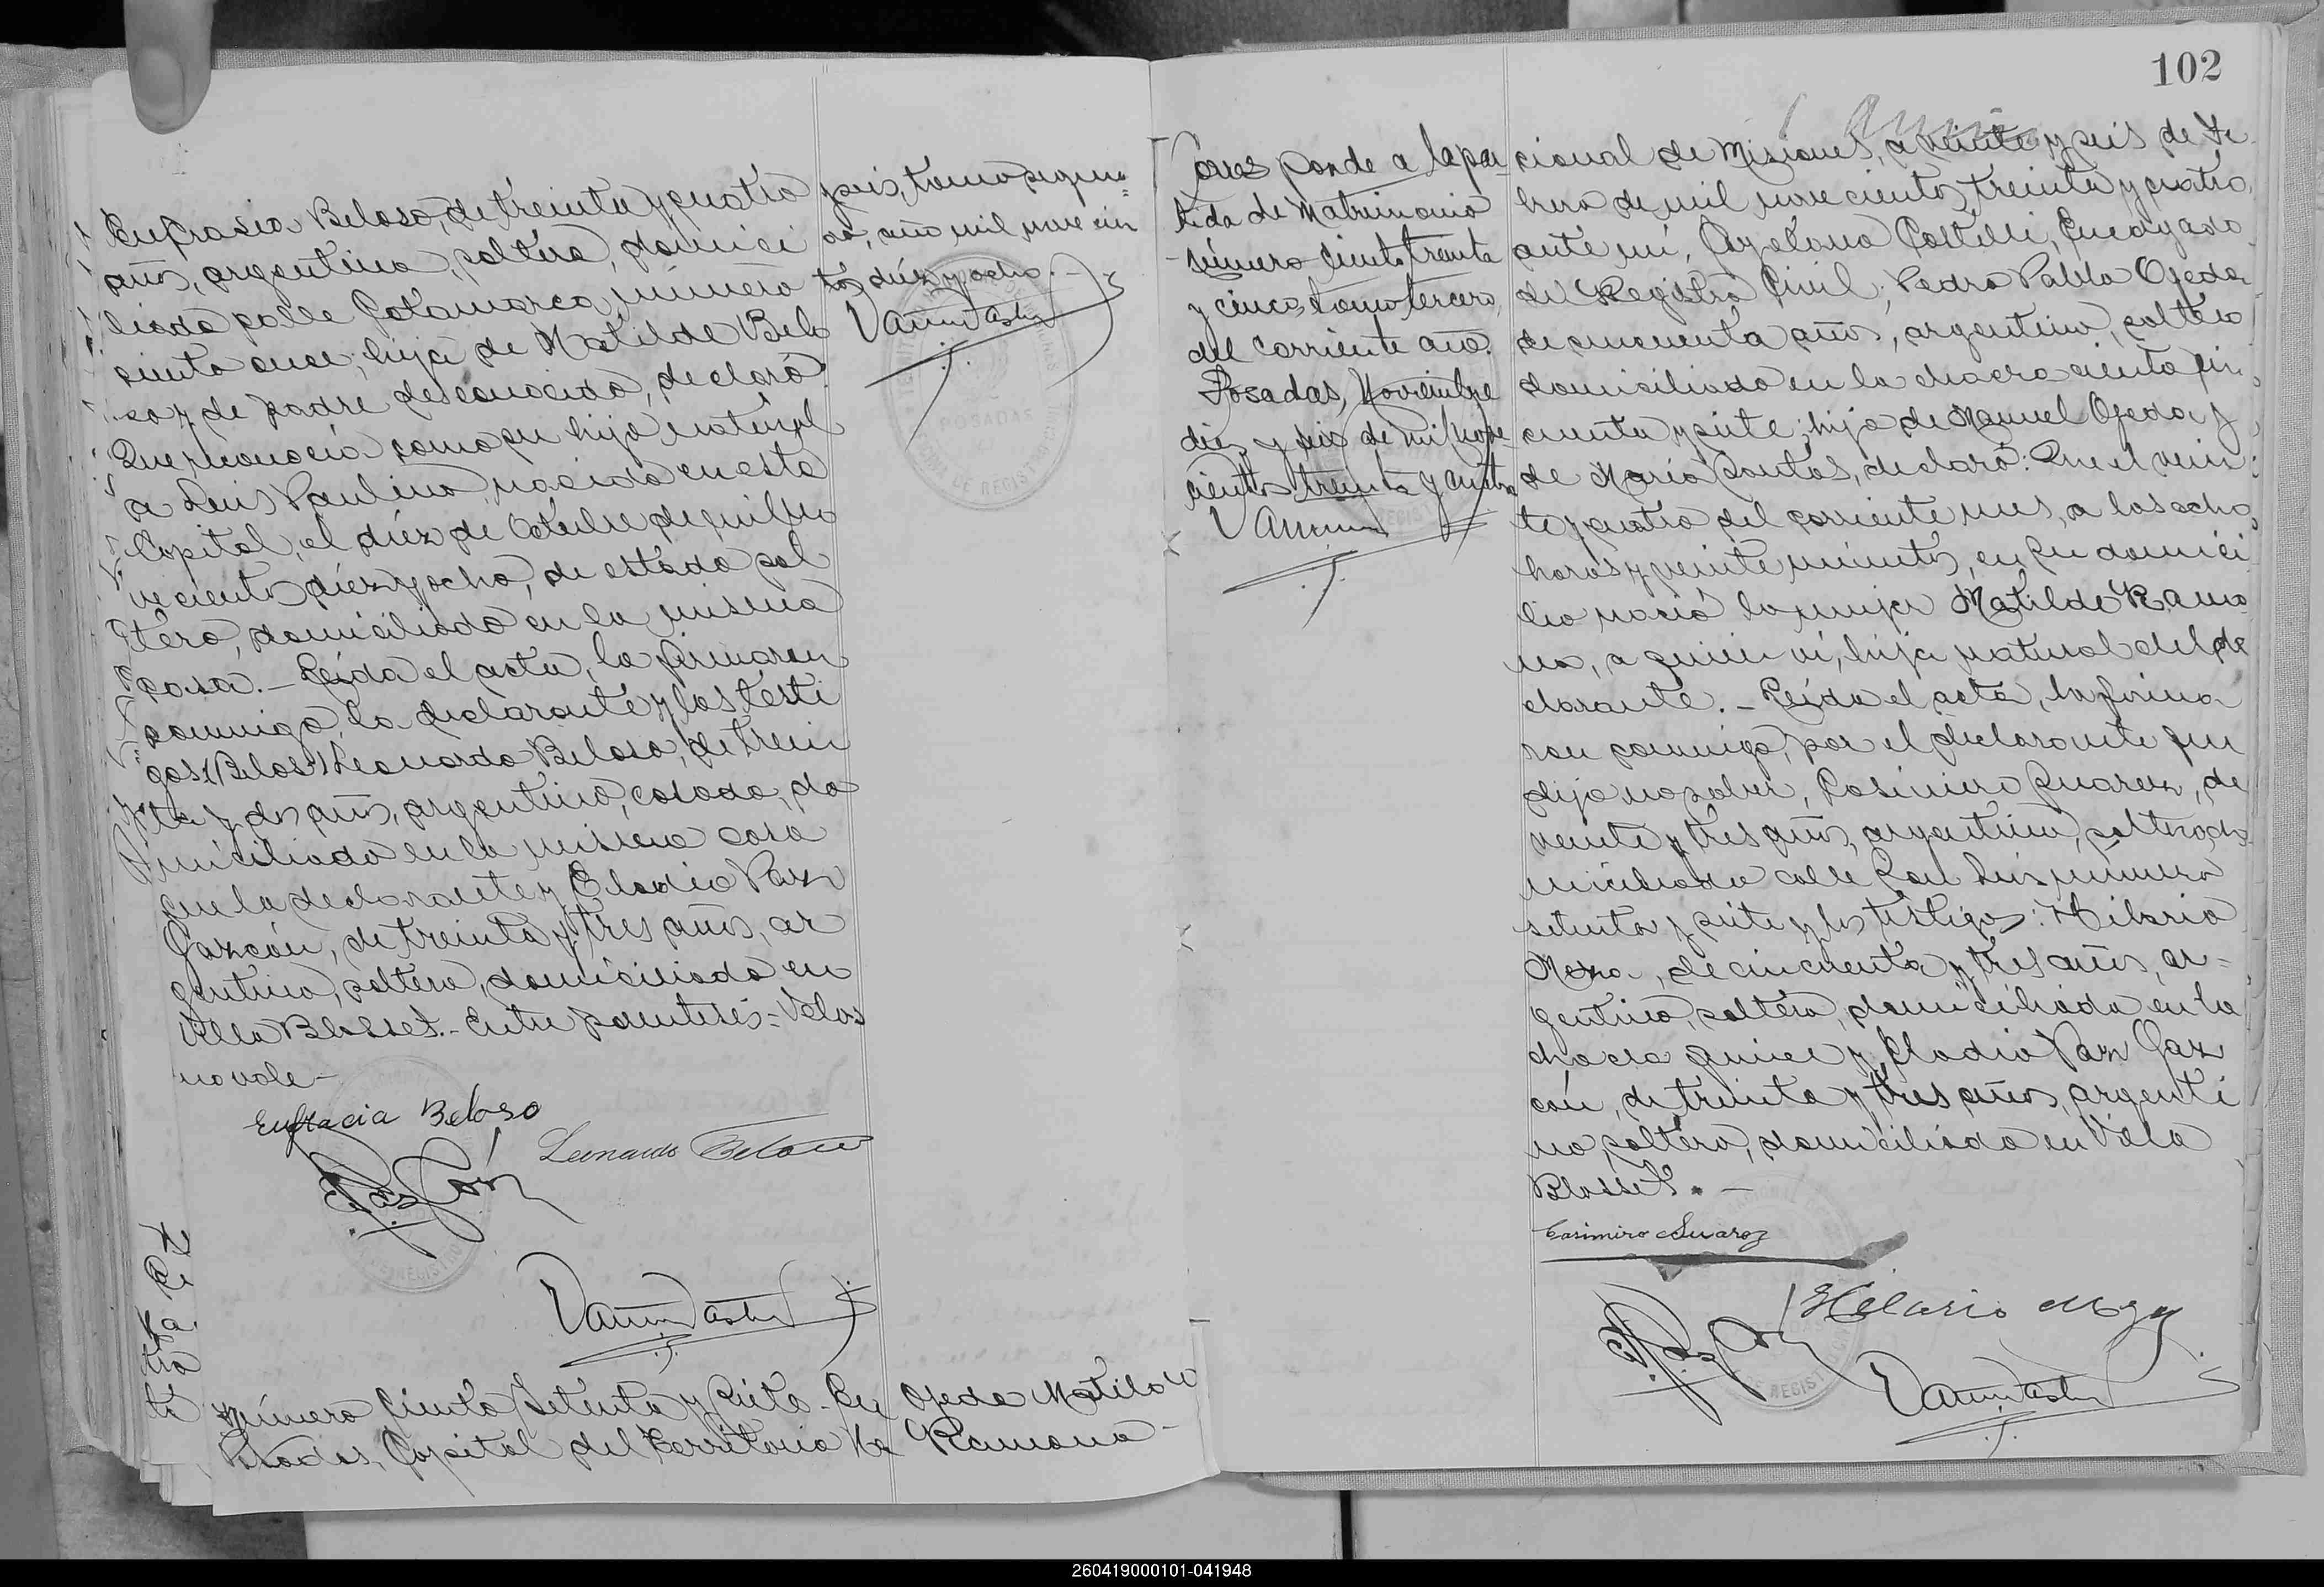 102
Eufrasia Beloso, de treinta y cuatro
años, argentina, soltera, domici
liada calle Catamarca número
ciento once, hija de Matilde Belo
so y de padre desconocido, declaró:
Que reconocía como su hijo natural
a Luis Paulino, nacido en esta
Capital, el diéz de Octubre de mil no
vecientos diéz y ocho, de estado sol
tero, domiciliado en la misma
casa.- Leída el acta, la firmaron
conmigo, la declarante y los testi
gos: (Belos) Leonardo Beloso, de trein
ta y dos años, argentino, casado, do
miciliado en la misma casa
que la declarante y Eladio Paz
Garzón, de treinta y tres años, ar
gentino, soltero, domiciliado en
Villa Blosset.- Entre parentesis= Velos
no vale-
Eufracia Beloso
Leonardo Beloso
y seis, tomo segun=
do, año mil nove cien
tos diéz y ocho.-
POSADAS
Número Ciento Setenta y Siete.- En
Posadas, Capital del Territorio Na
Ojeda Matilde
Ramona-
Corres ponde a la par
tida de Matrimonio
número ciento treinta
y cinco tomo tercero
del corriente año.
Posadas, Noviembre
diez y seis de mil nove
cientos treinta y cuatro
cional de Misiones, a veinte y seis de Fe
brero de mil novecientos treinta y cuatro,
ante mí, Cayetano Castelli, Encargado
del Registro Civil; Pedro Pablo Ojeda
de cincuenta años, argentino, soltero
domiciliado en la chacra ciento cin
cuenta y siete, hijo de Manuel Ojeda y
de María Santos, declaró: Que el vein
te y cuatro del corriente mes, a las ocho
horas y veinte minutos, en su domici
lio nació la mujer Matilde Ramo
na, a quien ví, hija natural del de
clarante.- Leída el acta, la firma
ron conmigo, por el declarante que
dijo no saber, Casimiro Suarez, de
veinte y tres años, argentino, soltero, do
miciliado calle San Luis número
setenta y siete y los testigos: Hilario
Meza, de cincuenta y tres años, ar=
gentino, soltero, domiciliado en la
chacra quince y Eladio Paz Gar
zón, de treinta y tres años, argenti
no, soltero, domiciliado en Villa
Blosset.-
Casimiro Suarez
Hilario Meza
260419000101-041948